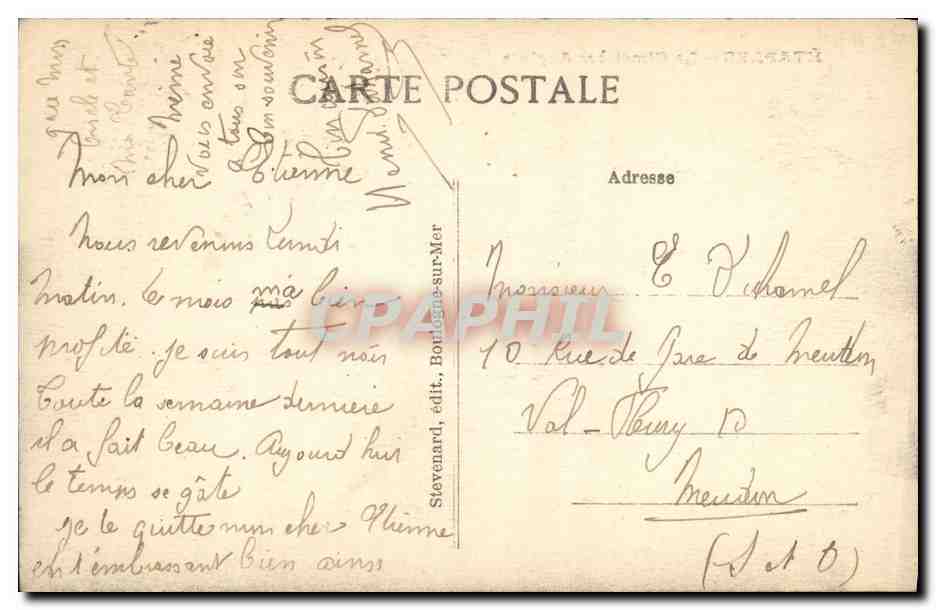 CARTE POSTALE
Mon cher Etienne
Nous revenons Lundi
Matin. Ce mois m'a bien
profité. je suis tout noir
Toute la semaine derniere
il a fait beau. Aujourd hui
le temps se gâte
je te quitte mon cher Etienne
en t'embrassant bien ainsi
que mon
oncle et
ma tante
Meine
vous envoie
a tous son
bon souvenir
Ton cousin
Duhamel
Stevenard, édit., Boulogne-sur-Mer
CPAPHIL
Adresse
Monsieur E Duhamel
10 Rue de Gare de Meudon
Val-Fleury
Meudon
(S et O)